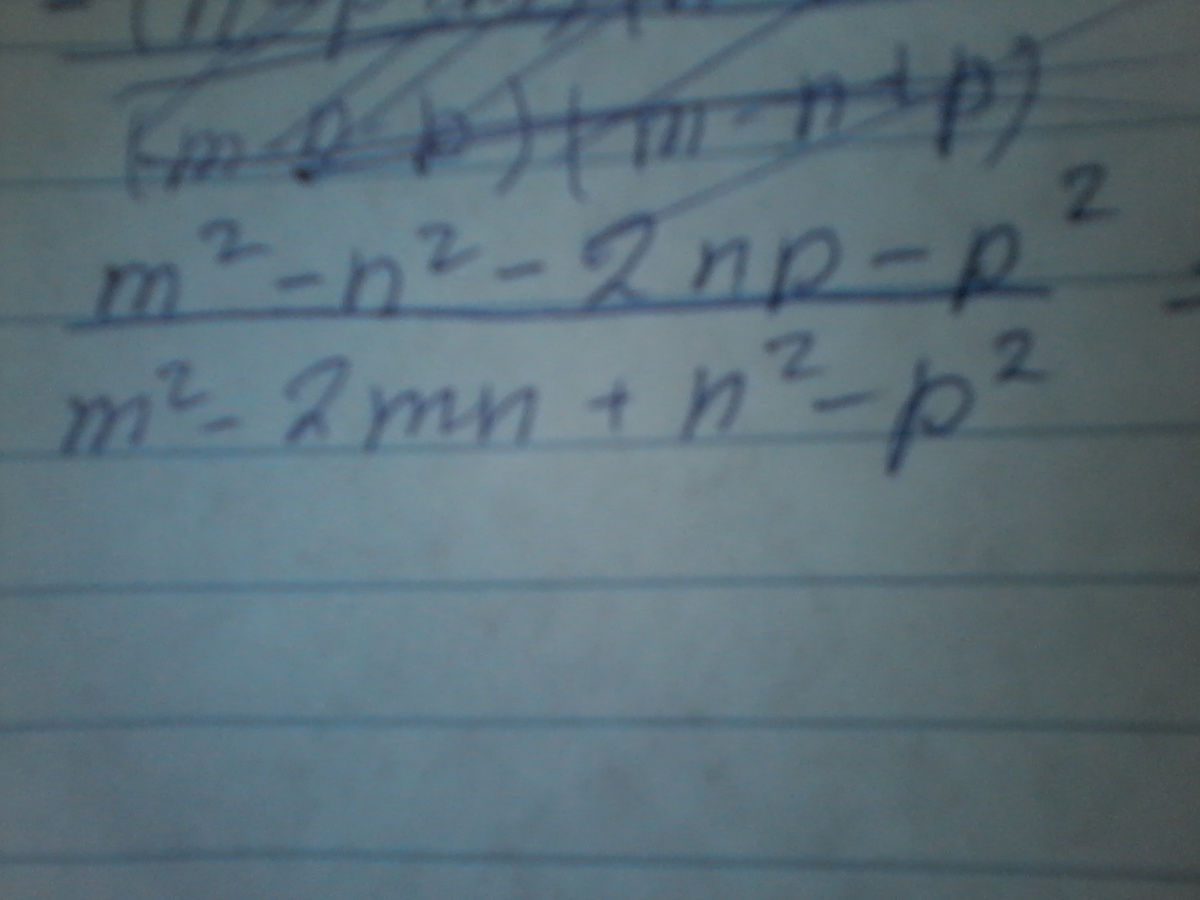 (m - n - p) (m - n + p)
m² - n² - 2np - p²
m² - 2mn + n² - p²